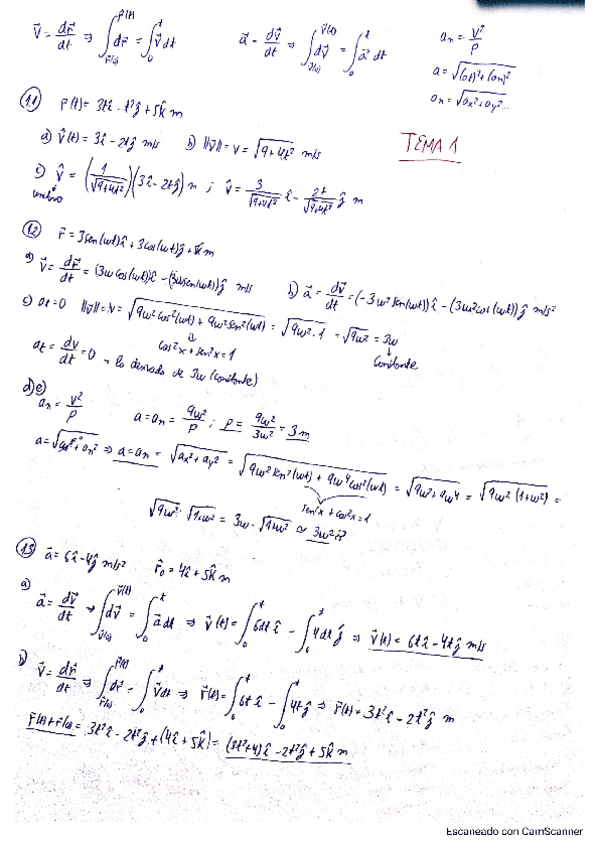 v⃗ = dr⃗/dt ⇒ ∫_{r⃗(0)}^{r⃗(t)} dr⃗ = ∫_0^t v⃗ dt    a⃗ = dv⃗/dt ⇒ ∫_{v⃗(0)}^{v⃗(t)} dv⃗ = ∫_0^t a⃗ dt    an = v²/ρ
a = √((at)²+(an)²)
an = √(ax²+ay²...
11 r⃗(t) = 3t î - t² ĵ + 5 k̂ m
TEMA 1
a) v⃗(t) = 3î - 2t ĵ m/s    b) ||v⃗|| = v = √(9+4t²) m/s
c) v̂ = (1/√(9+4t²)) (3î - 2tĵ) m ; v̂ = 3/√(9+4t²) î - 2t/√(9+4t²) ĵ m
12 r⃗ = 3sen(ωt)î + 3cos(ωt)ĵ + k̂ m
a) v⃗ = dr⃗/dt = (3ω cos(ωt))î - (3ω sen(ωt))ĵ m/s    b) a⃗ = dv⃗/dt = (-3ω² sen(ωt))î - (3ω² cos(ωt))ĵ m/s²
c) at = 0 ||v⃗|| = v = √(9ω² cos²(ωt) + 9ω² sen²(ωt)) = √(9ω² · 1) = √(9ω²) = 3ω
cos²x + sen²x = 1    constante
at = dv/dt = 0 → la derivada de 3ω (constante)
d) e)
an = v²/ρ    a = an = 9ω²/ρ ; ρ = 9ω²/3ω² = 3 m
a = √(at² + an²) ⇒ a = an = √(ax² + ay²) = √(9ω² sen²(ωt) + 9ω⁴ cos²(ωt)) = √(9ω² + 9ω⁴) = √(9ω² (1+ω²)) =
sen²x + cos²x = 1
√(9ω²) · √(1+ω²) = 3ω · √(1+ω²) ≃ 3ω²
13 a⃗ = 6î - 4ĵ m/s²    r⃗0 = 4î + 5k̂ m
a)
a⃗ = dv⃗/dt ⇒ ∫_{v⃗(0)}^{v⃗(t)} dv⃗ = ∫_0^t a⃗ dt ⇒ v⃗(t) = ∫_0^t 6dt î - ∫_0^t 4dt ĵ ⇒ v⃗(t) = 6t î - 4t ĵ m/s
b)
v⃗ = dr⃗/dt ⇒ ∫_{r⃗(0)}^{r⃗(t)} dr⃗ = ∫_0^t v⃗ dt ⇒ r⃗(t) = ∫_0^t 6t î - ∫_0^t 4t ĵ ⇒ r⃗(t) = 3t² î - 2t² ĵ m
r⃗(t) + r⃗(0) = 3t² î - 2t² ĵ + (4î + 5k̂) = (3t²+4) î - 2t² ĵ + 5k̂ m
Escaneado con CamScanner